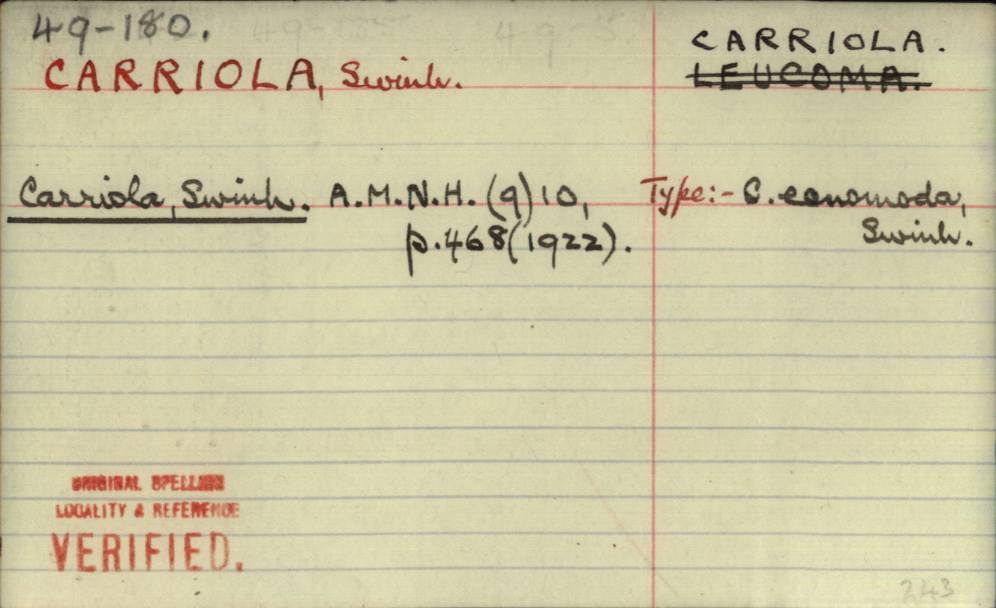 49-180.
CARRIOLA, Swinh.
CARRIOLA.
LEUCOMA.
Carriola, Swinh. A.M.N.H. (9) 10,
p.468 (1922).
Type:- C. ecnomoda,
Swinh.
ORIGINAL SPELLING
LOCALITY & REFERENCE
VERIFIED.
243